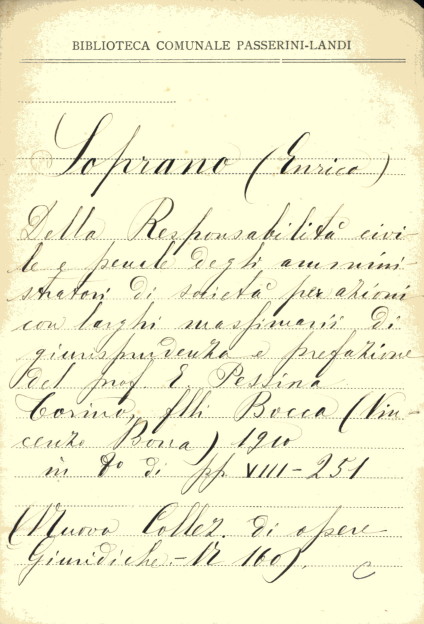 BIBLIOTECA COMUNALE PASSERINI-LANDI
Soprano (Enrico)
Della Responsabilità civi-
le e penale degli ammini-
stratori di società per azioni
con larghi massimarii di
giurisprudenza e prefazione
del prof. E. Pessina
Torino, flli Bocca (Vin-
cenzo Bona) 1910
in 8° di pp. VIII-251
(Nuova Collez. di opere
Giuridiche - N 160).